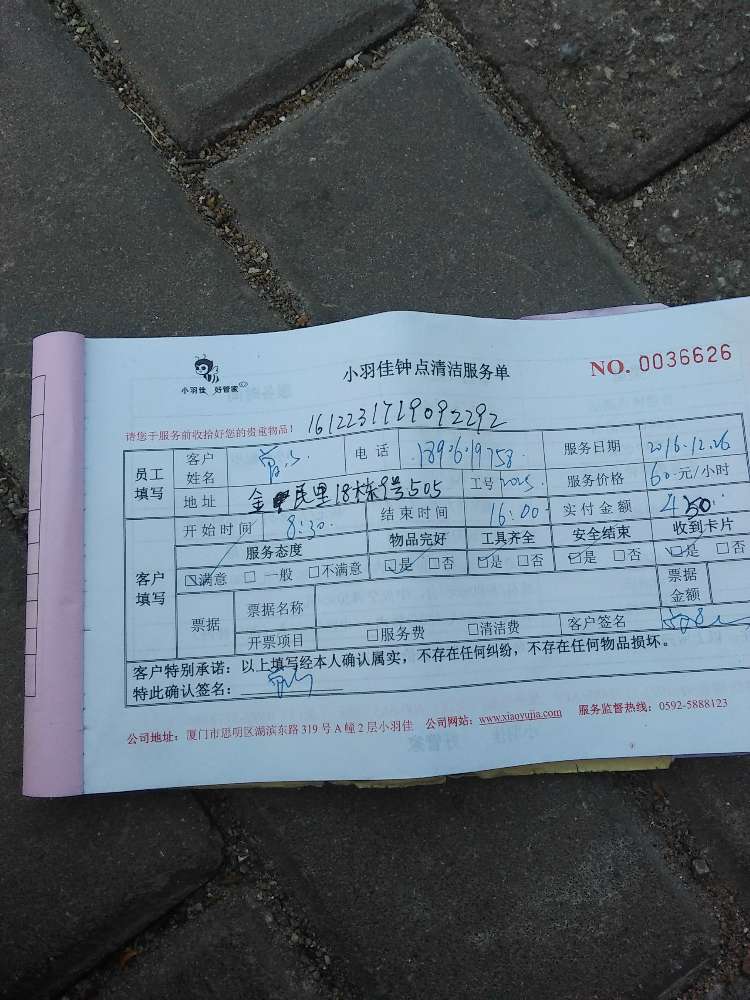 小羽佳 好管家
小羽佳钟点清洁服务单
NO. 0036626
请您于服务前收拾好您的贵重物品！ 1612231719092292
员工填写 客户姓名 电话 服务日期 2016.12.26
地址 18栋9号505 工号 服务价格 60元/小时
客户填写 开始时间 8:30 结束时间 16:00 实付金额 450
服务态度 物品完好 工具齐全 安全结束 收到卡片
☑满意 □一般 □不满意 ☑是 □否 ☑是 □否 ☑是 □否 ☑是 □否
票据 票据名称 票据金额
开票项目 □服务费 □清洁费 客户签名
客户特别承诺：以上填写经本人确认属实，不存在任何纠纷，不存在任何物品损坏。
特此确认签名：
公司地址：厦门市思明区湖滨东路319号A幢2层小羽佳 公司网站：www.xiaoyujia.com 服务监督热线：0592-5888123